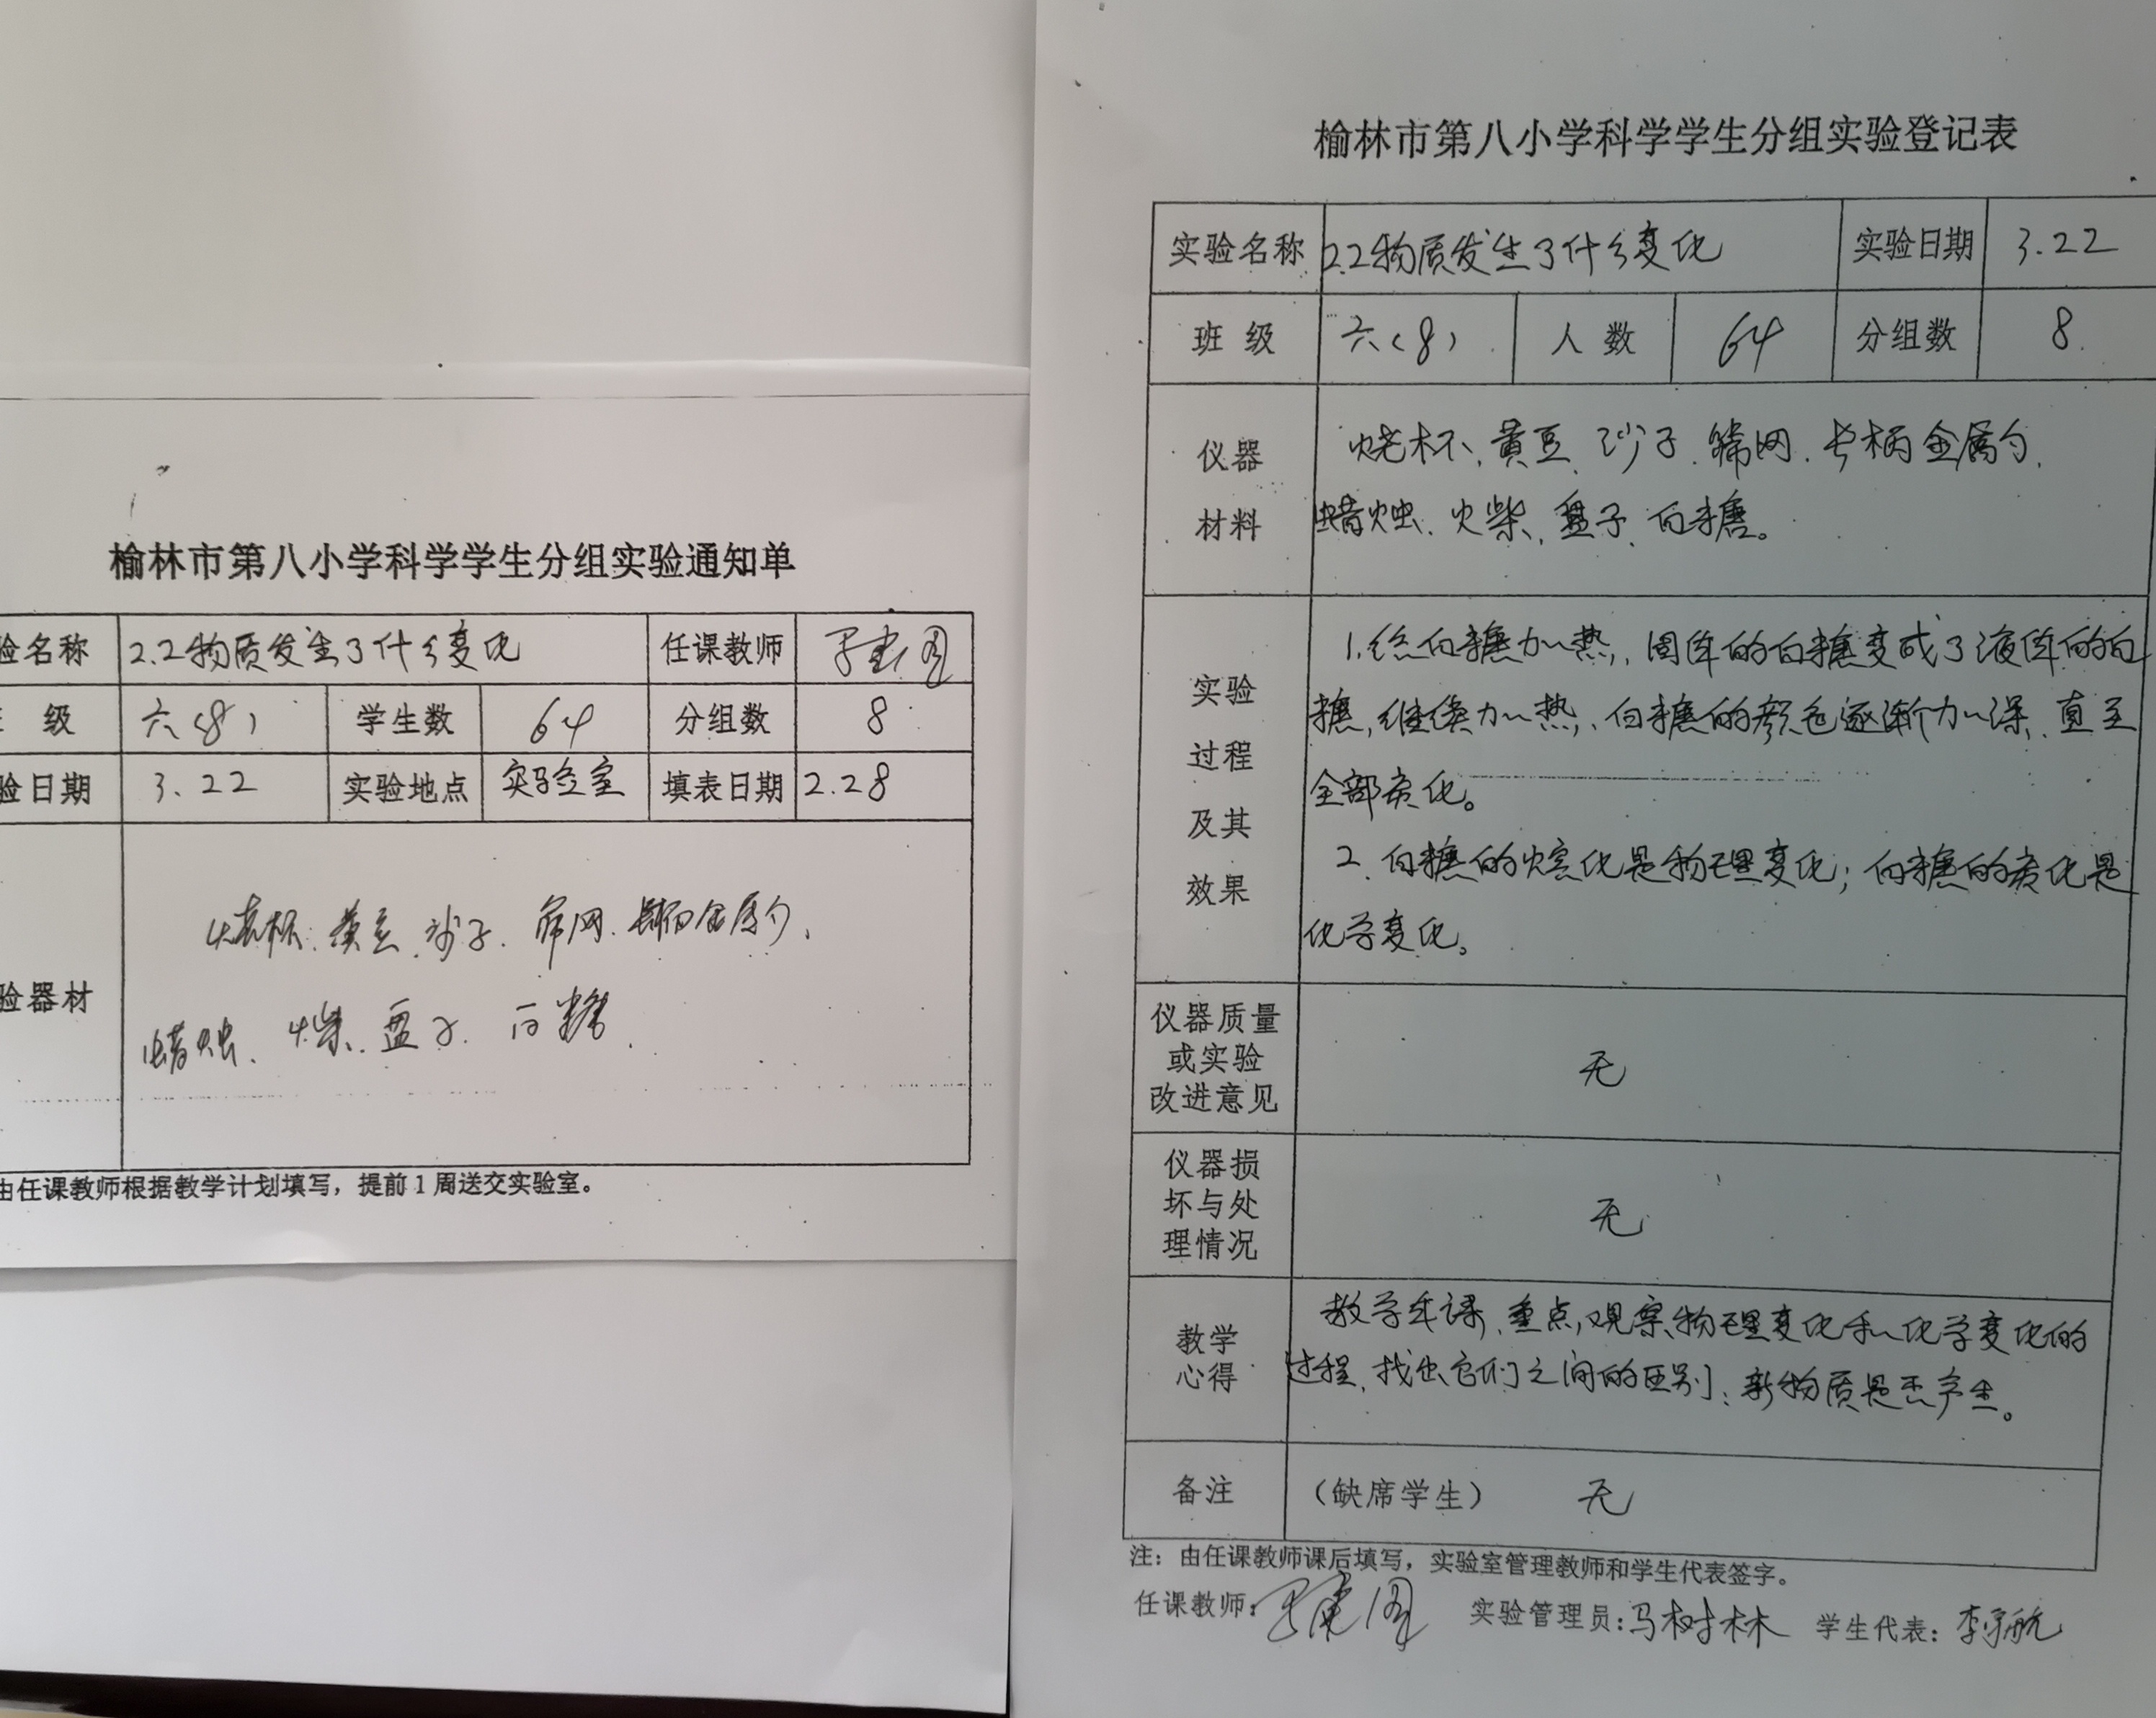 榆林市第八小学科学学生分组实验通知单
验名称 2.2物质发生了什么变化 任课教师
级 六(8) 学生数 64 分组数 8
验日期 3.22 实验地点 实验室 填表日期 2.28
验器材
烧杯、黄豆、沙子、筛网、长柄金属勺、
蜡烛、火柴、盘子、白糖、
由任课教师根据教学计划填写，提前1周送交实验室。
榆林市第八小学科学学生分组实验登记表
实验名称 2.2物质发生了什么变化 实验日期 3.22
班级 六(8) 人数 64 分组数 8
仪器材料
烧杯、黄豆、沙子、筛网、长柄金属勺、
蜡烛、火柴、盘子、白糖。
实验过程及其效果
1.给白糖加热，固体的白糖变成了液体的白
糖，继续加热，白糖的颜色逐渐加深，直至
全部炭化。
2.白糖的熔化是物理变化；白糖的炭化是
化学变化。
仪器质量或实验改进意见 无
仪器损坏与处理情况 无
教学心得
教学本课，重点观察物理变化和化学变化的
过程，找出它们之间的区别：新物质是否产生。
备注 （缺席学生） 无
注：由任课教师课后填写，实验室管理教师和学生代表签字。
任课教师： 实验管理员：马树林 学生代表：李宇航